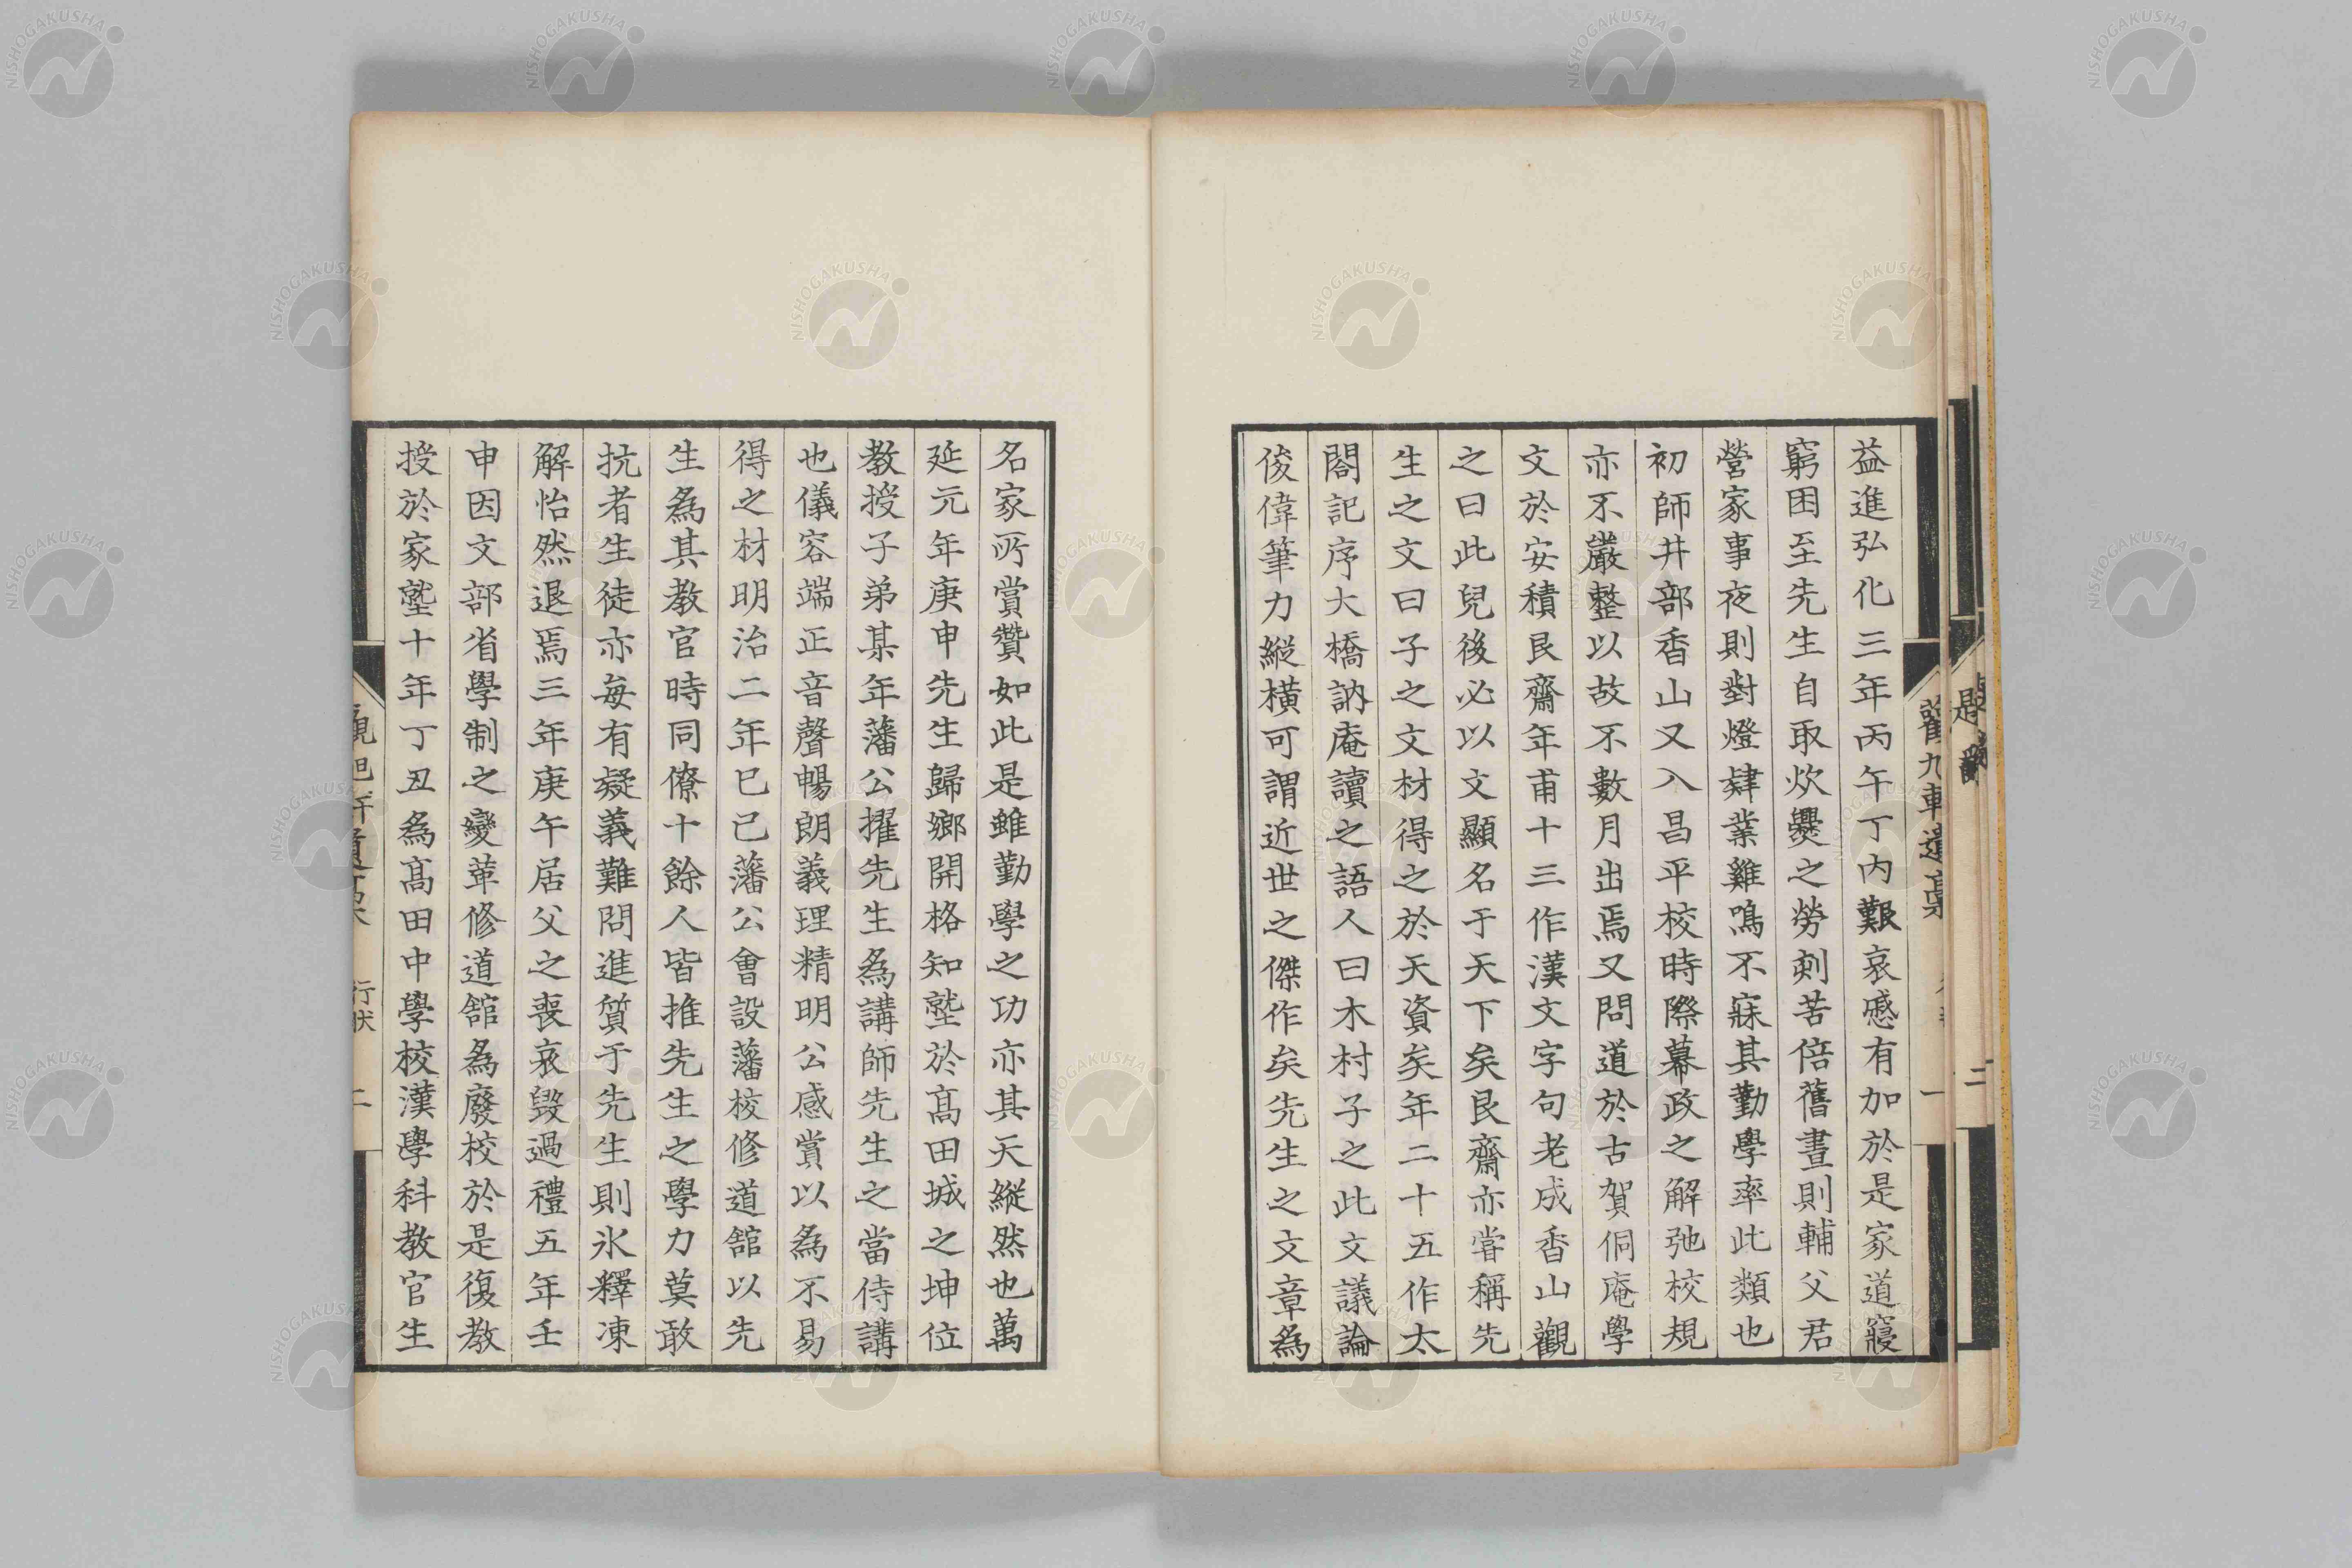 益進弘化三年丙午丁内艱哀慼有加於是家道寢
窮困至先生自取炊爨之勞刻苦倍舊晝則輔父君
營家事夜則對燈肄業雞鳴不寐其勤學率此類也
初師井部香山又入昌平校時際幕政之解弛校規
亦不嚴整以故不數月出焉又問道於古賀侗庵學
文於安積艮齋年甫十三作漢文字句老成香山觀
之曰此兒後必以文顯名于天下矣艮齋亦嘗稱先
生之文曰子之文材得之於天資矣年二十五作太
閤記序大橋訥庵讀之語人曰木村子之此文議論
俊偉筆力縱橫可謂近世之傑作矣先生之文章為
名家所賞贊如此是雖勤學之功亦其天縱然也萬
延元年庚申先生歸鄉開格知塾於髙田城之坤位
教授子弟某年藩公擢先生為講師先生之當侍講
也儀容端正音聲暢朗義理精明公感賞以為不易
得之材明治二年己巳藩公會設藩校修道舘以先
生為其教官時同僚十餘人皆推先生之學力莫敢
抗者生徒亦每有疑義難問進質于先生則氷釋凍
解怡然退焉三年庚午居父之喪哀毀過禮五年壬
申因文部省學制之變革修道舘為廢校於是復教
授於家塾十年丁丑為髙田中學校漢學科教官生
行狀
二
NISHOGAKUSHA